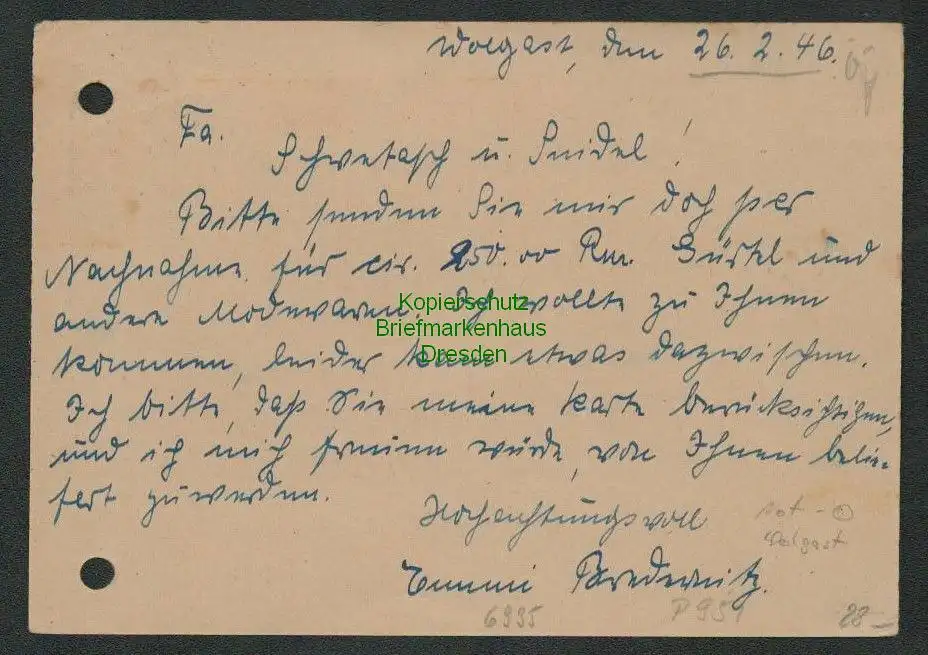 Wolgast, den 26.2.46.
Fa.
Schwetasch u. Seidel!
Bitte senden Sie mir doch per
Nachnahme für cir. 250.00 Rm. Gürtel und
andere Modewaren. Ich wollte zu Ihnen
kommen, leider kam etwas dazwischen.
Ich bitte, daß Sie meine Karte berücksichtigen,
und ich mich freuen würde, von Ihnen belie-
fert zu werden.
Hochachtungsvoll
Emmi Bredernitz.
rot -
Wolgast
6935
P 951
28-
Kopierschutz
Briefmarkenhaus
Dresden